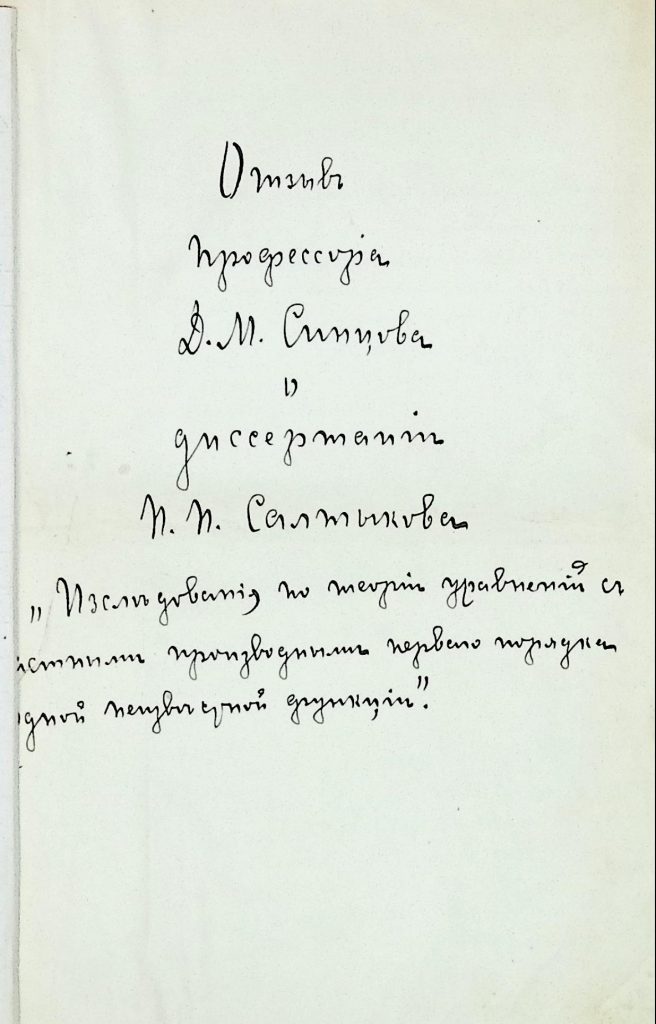 Отзывъ
профессора
Д. М. Синцова
о
диссертаціи
Н. Н. Салтыкова
„Изслѣдованія по теоріи уравненій съ
астными производными первого порядка
одной неизвѣстной функціи".